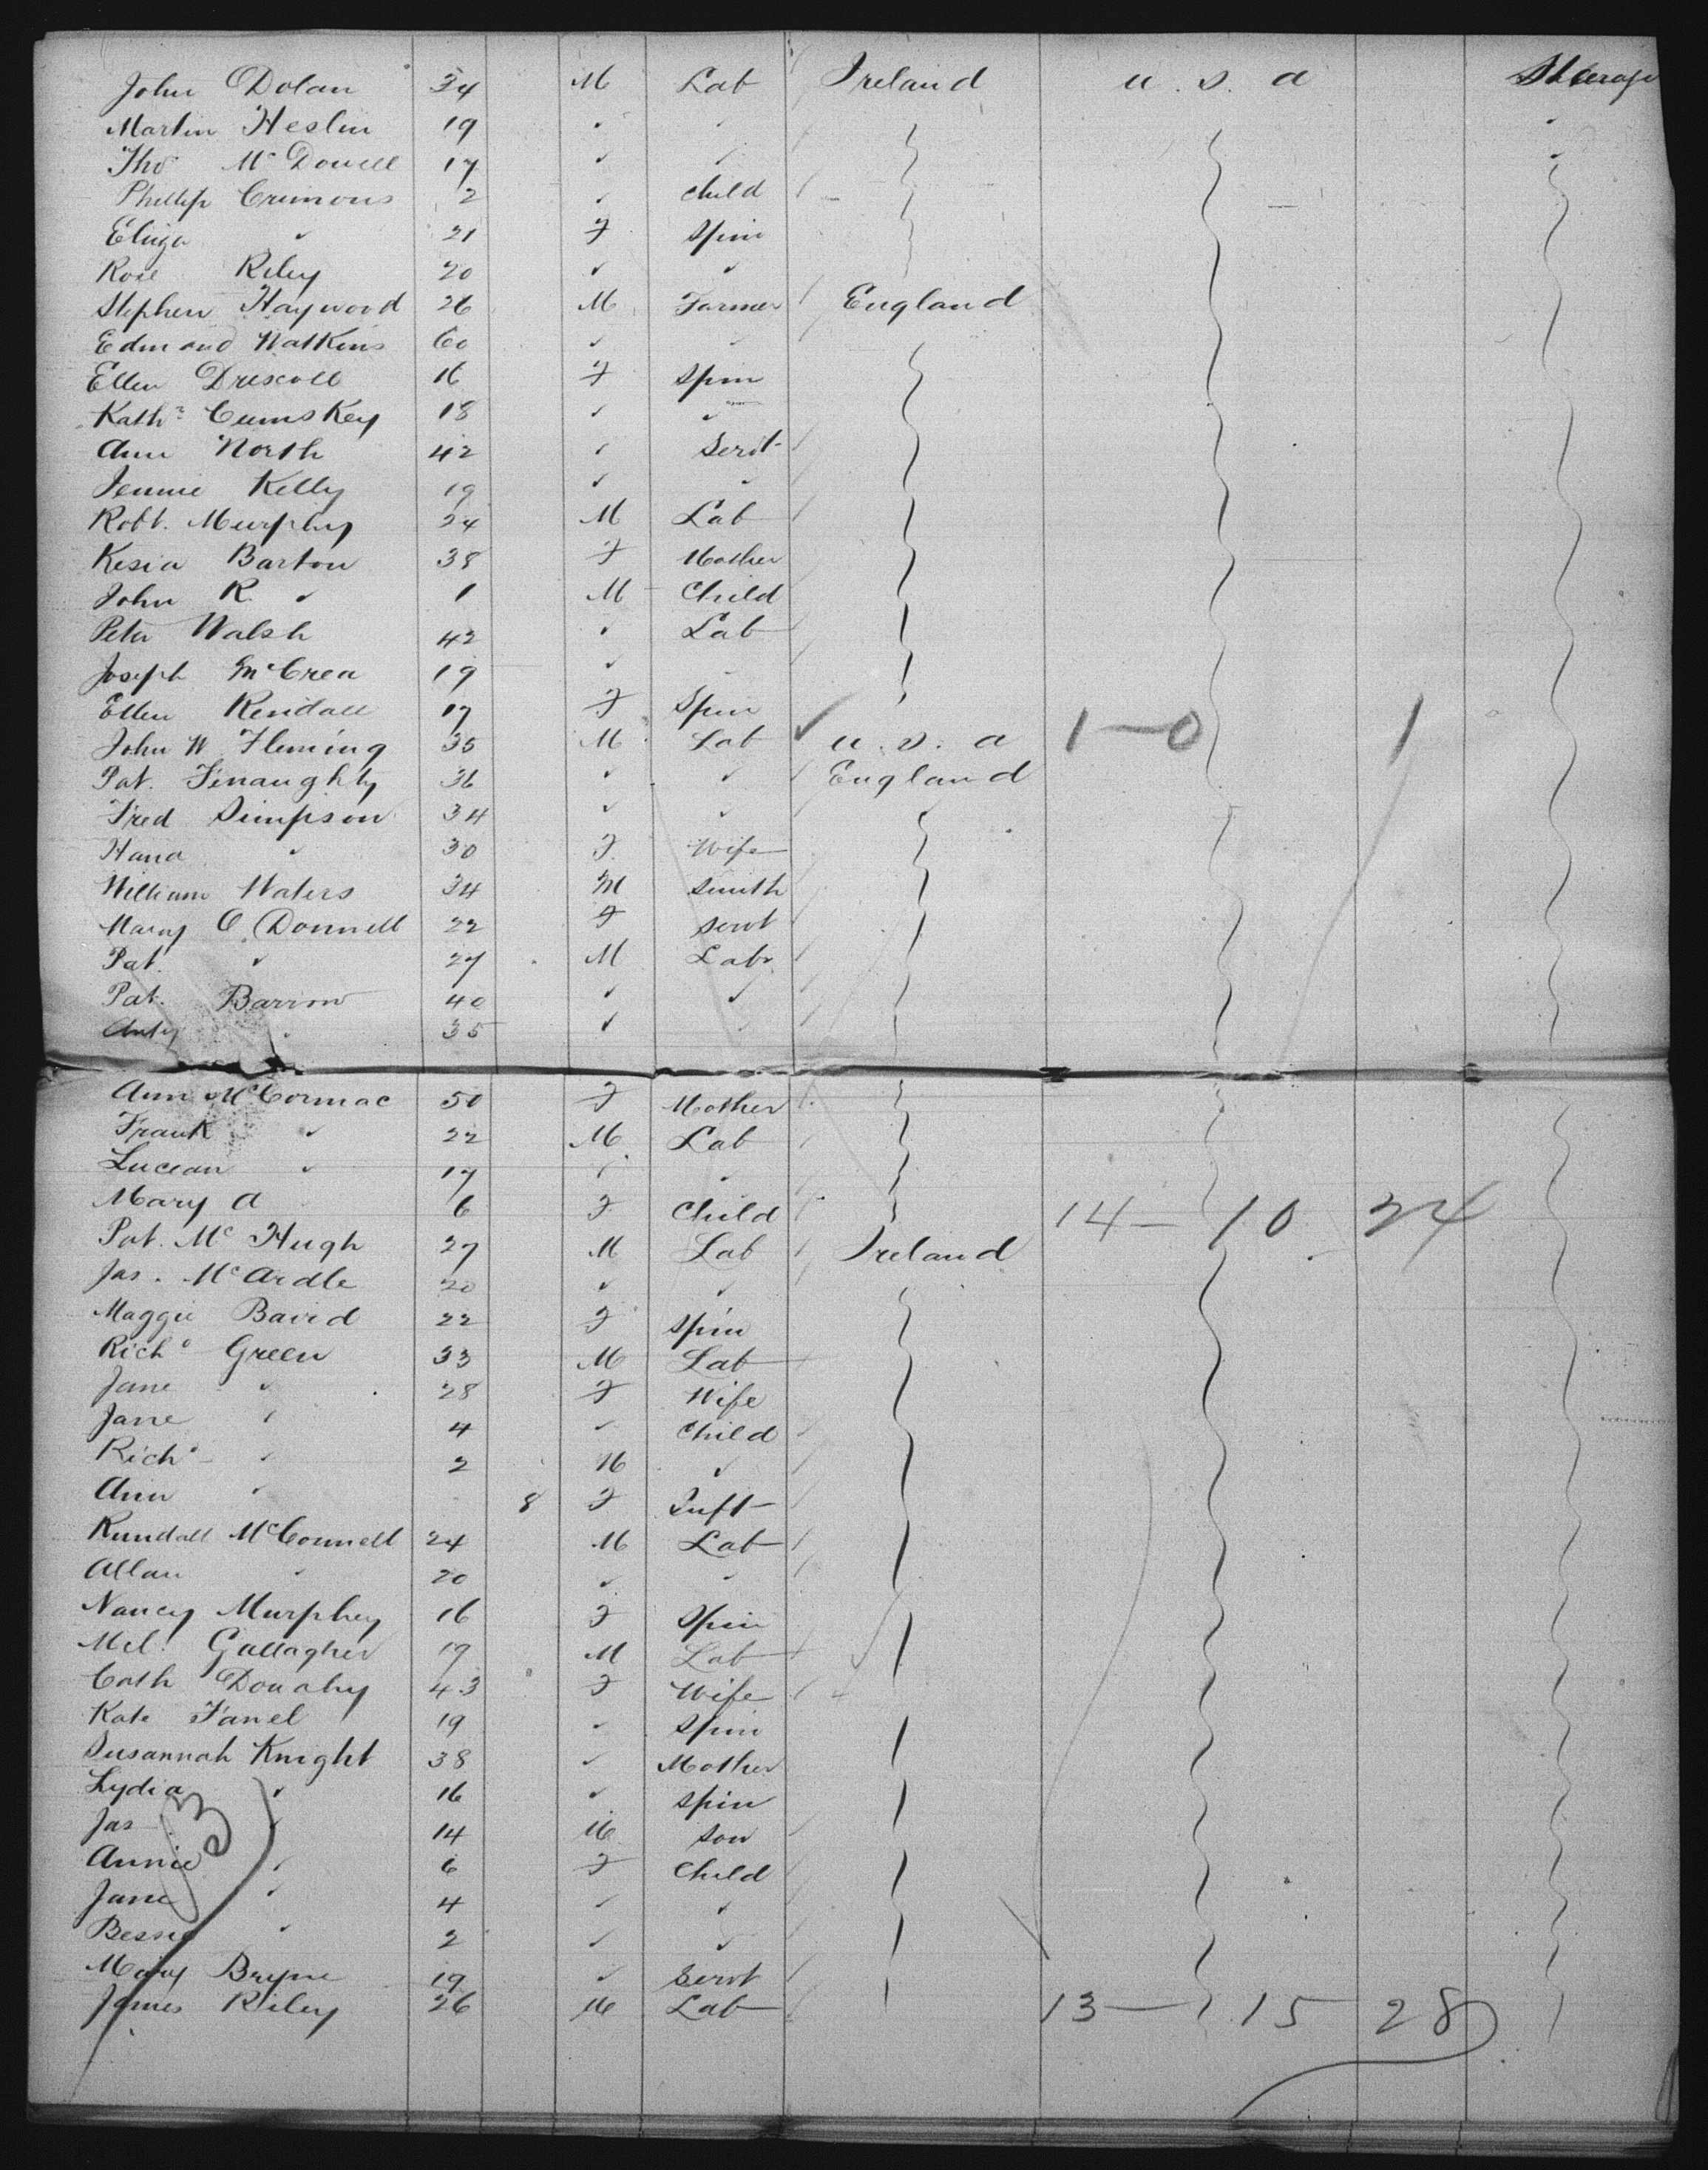 John Dolan 34 M Lab Ireland U.S.A Steerage
Martin Heslin 19 " " "
Thos McDowell 17 " " "
Phillip Crimons 2 " Child
Eliza " 21 F Spin
Rose Riley 20 " "
Stephen Haywood 26 M Farmer England
Edmond Watkins 60 " "
Ellen Driscoll 16 F Spin
Kath. Cumskey 18 " "
Ann North 42 " Servt
Jennie Kelly 19 " "
Robt. Murphy 24 M Lab
Kesia Barton 38 F Mother
John R. " 1 M Child
Peter Walsh 42 " Lab
Joseph McCrea 19 " "
Ellen Kendall 17 F Spin
John W Fleming 35 M Lab U.S.A 1-0 1
Pat. Finaughty 36 " " England
Fred Simpson 34 " "
Hana " 30 F Wife
William Waters 34 M Smith
Mary O Donnell 22 F Servt
Pat. " 27 M Labr
Pat. Barrow 40 " "
Anty " 35 " "
Ann McCormac 50 F Mother
Frank " 22 M Lab
Lucean " 17 " "
Mary A 6 F Child 14- 10 24
Pat. McHugh 27 M Lab Ireland
Jas. McArdle 20 " "
Maggie Baird 22 F Spin
Richd Green 33 M Lab
Jane " 28 F Wife
Jane " 4 " Child
Richd " 2 M "
Ann " 8 F Inft
Rundall McConnell 24 M Lab
Allan " 20 " "
Nancy Murphey 16 F Spin
Mcl. Gallagher 19 M Lab
Cath Donahy 43 F Wife
Kate Fanel 19 " Spin
Susannah Knight 38 " Mother
Lydia " 16 " Spin
Jas " 14 M Son
Annie " 6 F Child
Jane " 4 " "
Bessie " 2 " "
Mary Bryne 19 " Servt
James Riley 26 M Lab 13- 15 28